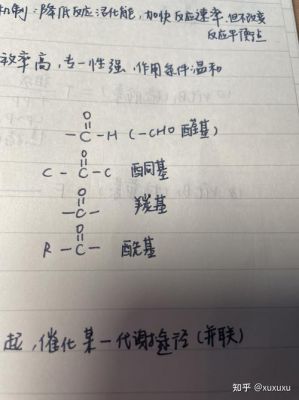 机制:降低反应活化能,加快反应速率,但不改变
反应平衡点
效率高,专一性强,作用条件温和
O
-C-H (-CHO 醛基)
O
C-C-C 酮基
O
-C- 羰基
O
R-C- 酰基
起,催化某一代谢途径(并联)
知乎 @xuxuxu